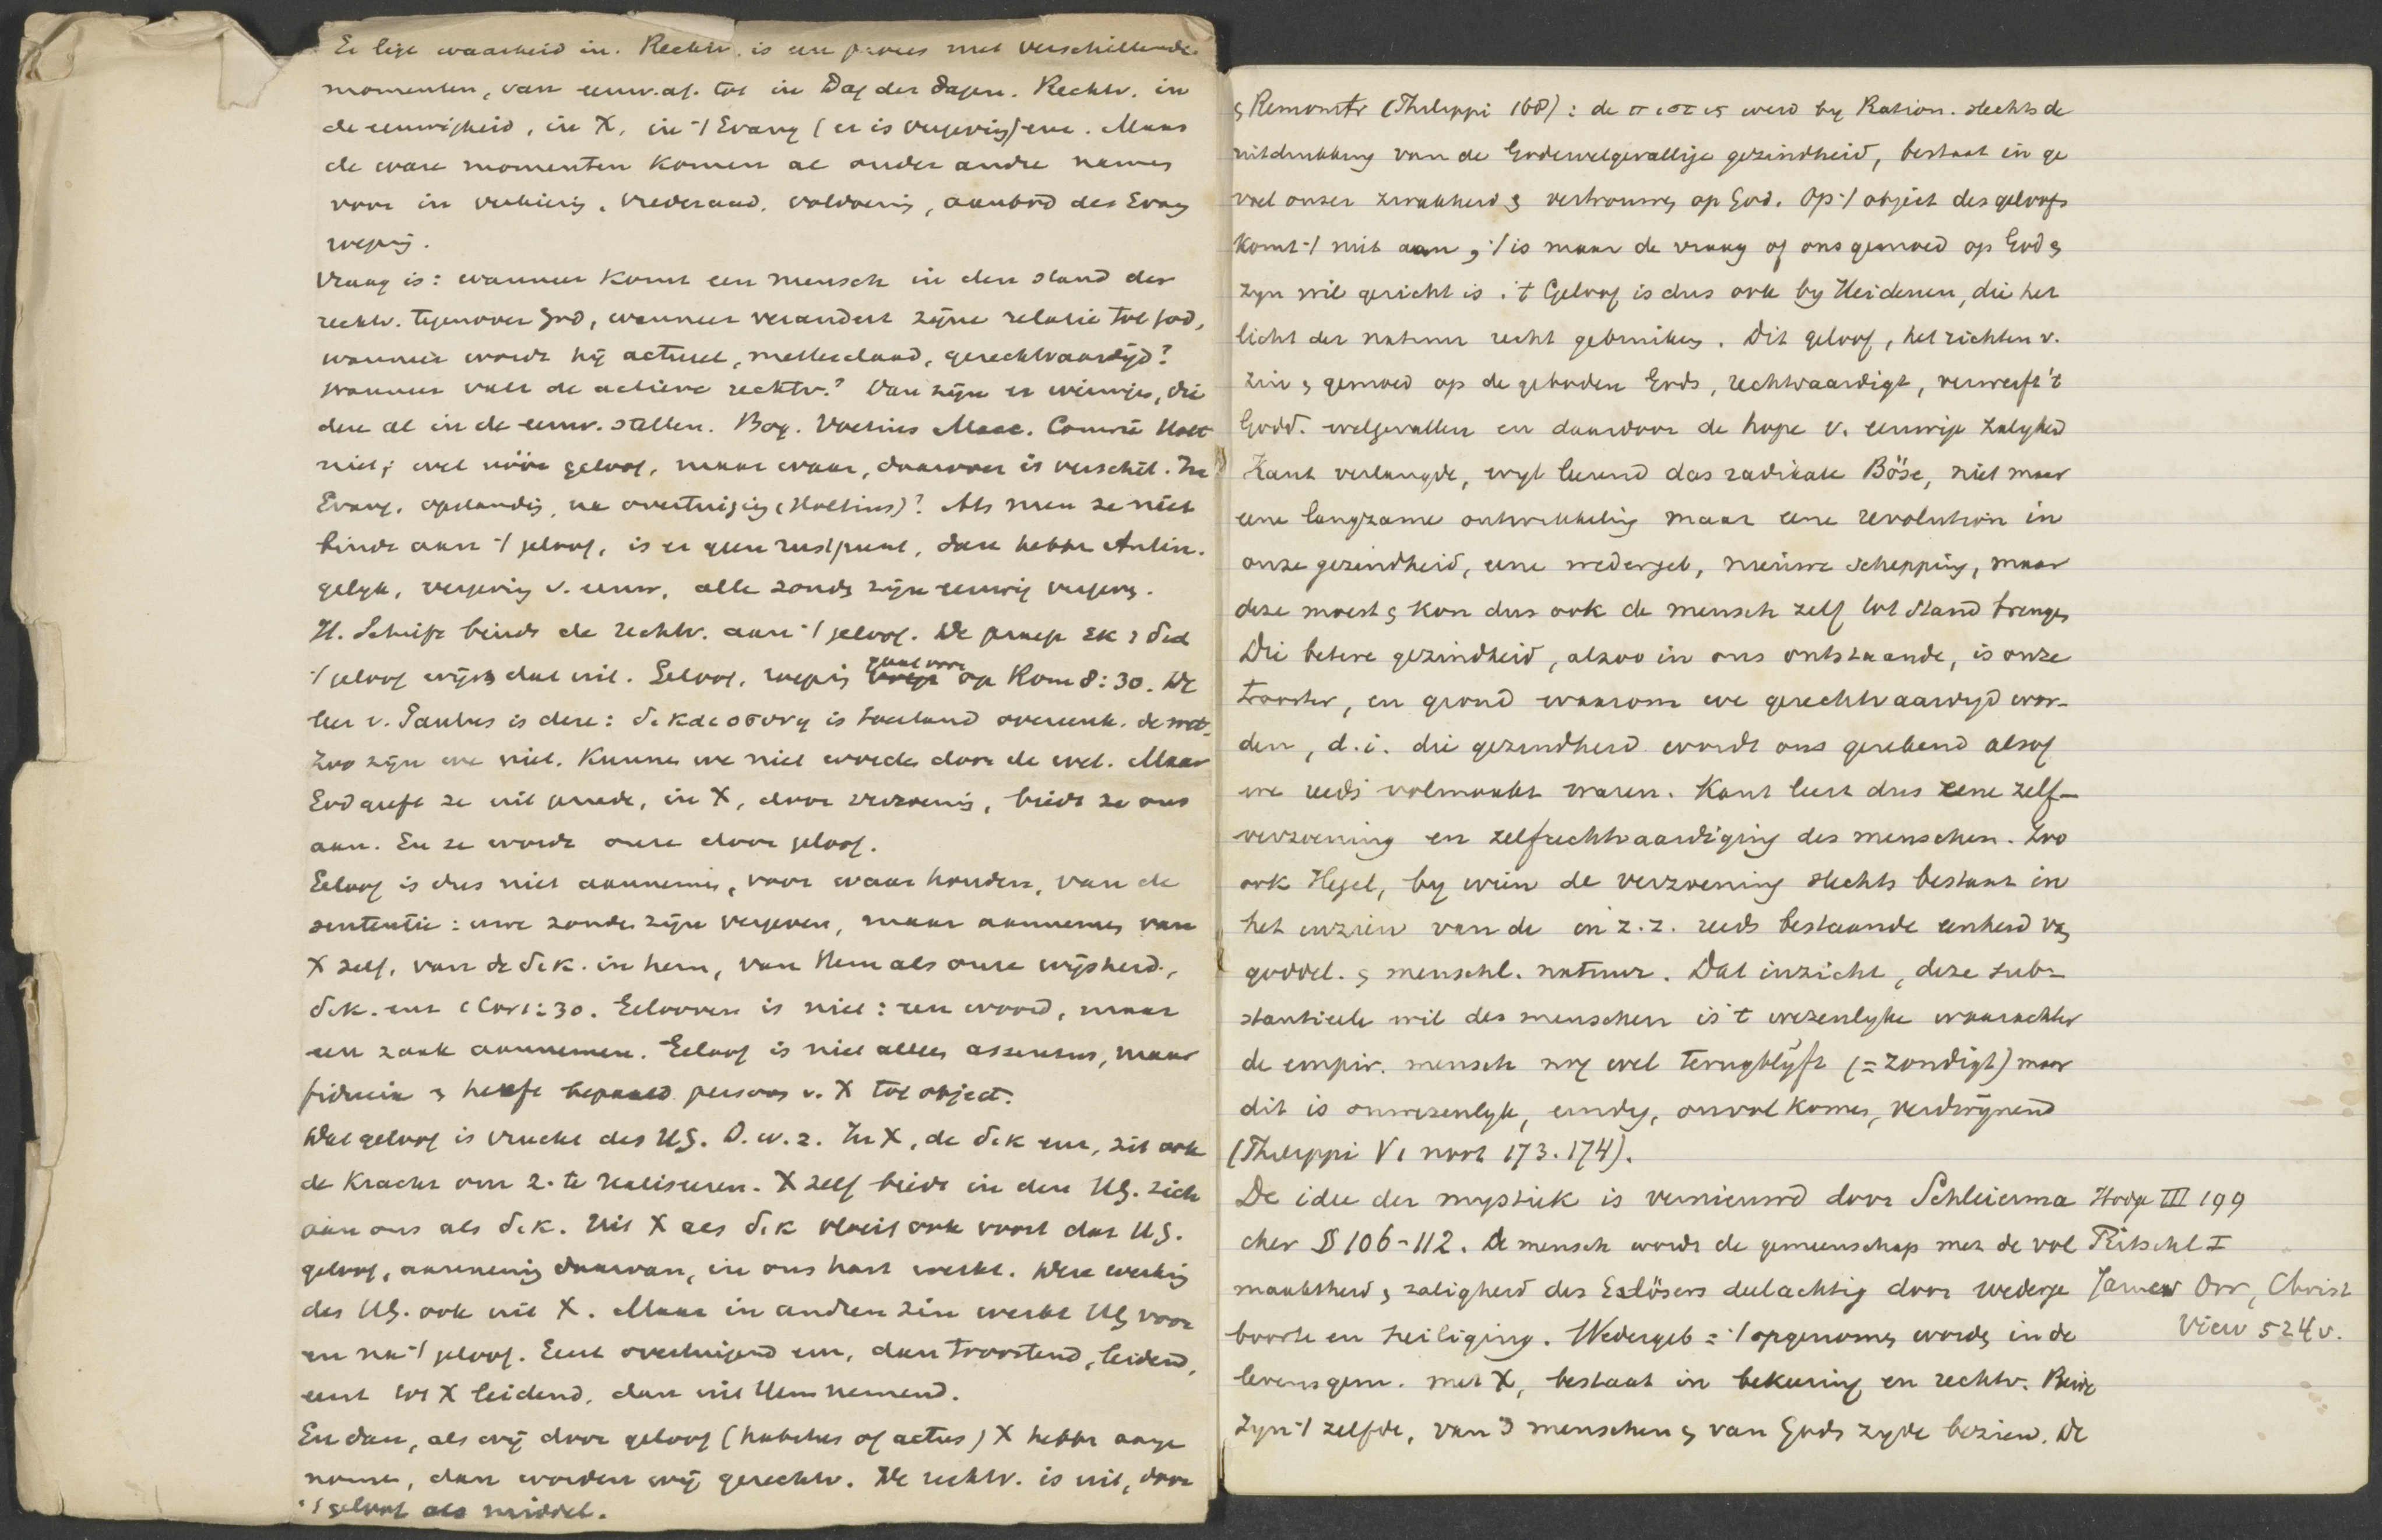 Er ligt waarheid in. Rechtv. is een proces met verschillende
momenten, van eeuw. af. tot in Dag der dagen. Rechtv. in
de eeuwigheid, in X, in -/ Evang (er is vergeving) enz. Maar
de ware momenten komen al onder andre names
voor in verkiezg, vrederaad, voldoenig, aanbod des Evang
roeping.
Vraag is: wanneer komt een mensch in den stand der
rechtv. tegenover God, wanneer verandert zijne relatie tot God,
wanneer wordt hij actueel, metterdaad, gerechtvaardigd?
Wanneer valt de actieve rechtv.? Dan zijn er weinigs, die
deze al in de eeuw. stellen. Bog. Voetius Macc. Comrie Holt
niet; wel vóór geloof, maar waar, daarover is verschil. In
Evang. opstandig, na overtuigig (Holtius)? Als men ze niet
bindt aan -/ geloof, is er geen rustpunt, dan hebbn Antin.
gelyk, vergevig v. eeuw, alle zondς zijn eeuwig vergevς.
H. Schrift bindt de rechtv. aan -/ geloof. De praep εκ ς δια
-/ geloof wijzς dat uit. Geloof, roepig gaat voor op Rom 8:30. De
leer v. Paulus is deze: δικαιοσυνη is toestand overeenk. de wet.
Zoo zijn we niet. Kunneς we niet worden door de wet. Maar
God geeft ze uit genade, in X, door verzoenig, biedt ze ons
aan. En ze wordt onze door geloof.
Geloof is dus niet aannemeς, voor waar houden, van de
sententie: uwe zondeς zijn vergeven, maar aannemeς van
X zelf, van de δικ. in hem, van Hem als onze wijsheid,
δικ. enz 1 Cor 1:30. Gelooven is niet: een woord, maar
een zaak aannemen. Geloof is niet alleen assensus, maar
fiducia ς heeft bepaald persoon v. X tot object.
Dat geloof is vrucht des HG. D.w.z. In X, de δικ enz, zit ook
de kracht om z. te realiseren. X zelf biedt in den HG. zich
aan ons als δικ. Uit X als δικ vloeit ook voort dat HG.
geloof, aannemig daarvan, in ons hart werkt. Deze werkig
des HG. ook uit X. Maar in andren zin werkt HG voor
en na -/ geloof. Eerst overtuigend enz, dan troostend, leidend,
eerst tot X leidend, dan uit Hem nemend.
En dan, als wij door geloof (habitus of actus) X hebbn aange
nomen, dan worden wij gerechtv. De rechtv. is uit, door
-/ geloof als middel.
ς Remonstr (Philippi 168): de πιστις werd by Ration. slechts de
uitdrukking van de Godewelgevallige gezindheid, bestaat in ge
voel onzer zwakheid ς vertrouweς op God. Op -/ object des geloofs
komt -/ niet aan, -/ is maar de vraag of ons gemoed op God ς
zyn wil gericht is. 't Geloof is dus ook by Heidenen, die het
licht der natuur recht gebruikeς. Dit geloof, het richten v.
zin ς gemoed op de geboden Gods, rechtvaardigt, verwerft 't
Godd. welgevallen en daardoor de hope v. eeuwige zaligheid
Kant verlangde, wyl leerend das radikale Böse, niet maar
eene langzame ontwikkelig maar eene revolution in
onze gezindheid, eene wedergeb, nieuwe schepping, maar
deze moest ς kon dus ook de mensch zelf tot stand brengeς
Die betere gezindheid, alzoo in ons ontstaande, is onze
trooster, en grond waarom we gerechtvaardigd wor-
den, d.i. die gezindheid wordt ons gerekend alsof
we reeds volmaakt waren. Kant leert dus eene zelf-
verzoening en zelfrechtvaardiging des menschen. Zoo
ook Hegel, by wien de verzoening slechts bestaat in
het inzien van de in z.z. reeds bestaande eenheid vaς
goddel. ς menschl. natuur. Dat inzicht, deze sub-
stantieele wil des menschen is 't wezenlyke waarachter
de empir. mensch nog wel terugblijft (= zondigt) maar
dit is onwezenlyk, eindig, onvolkomeς, verdwijnend
(Philippi V1 noot 173. 174).
De idee der mystiek is vernieuwd door Schleierma
cher § 106-112. De mensch wordt de gemeenschap met de vol
maaktheid ς zaligheid des Erlösers deelachtig door wederge
boorte en heiliging. Wedergeb = -/ opgenomeς wordς in de
levensgem. met X, bestaat in bekeering en rechtv. Beide
zyn -/ zelfde, van 's menschen ς van Gods zyde bezien. De
Hodge III 199
Ritschl I
James Orr, Christ
View 524 v.